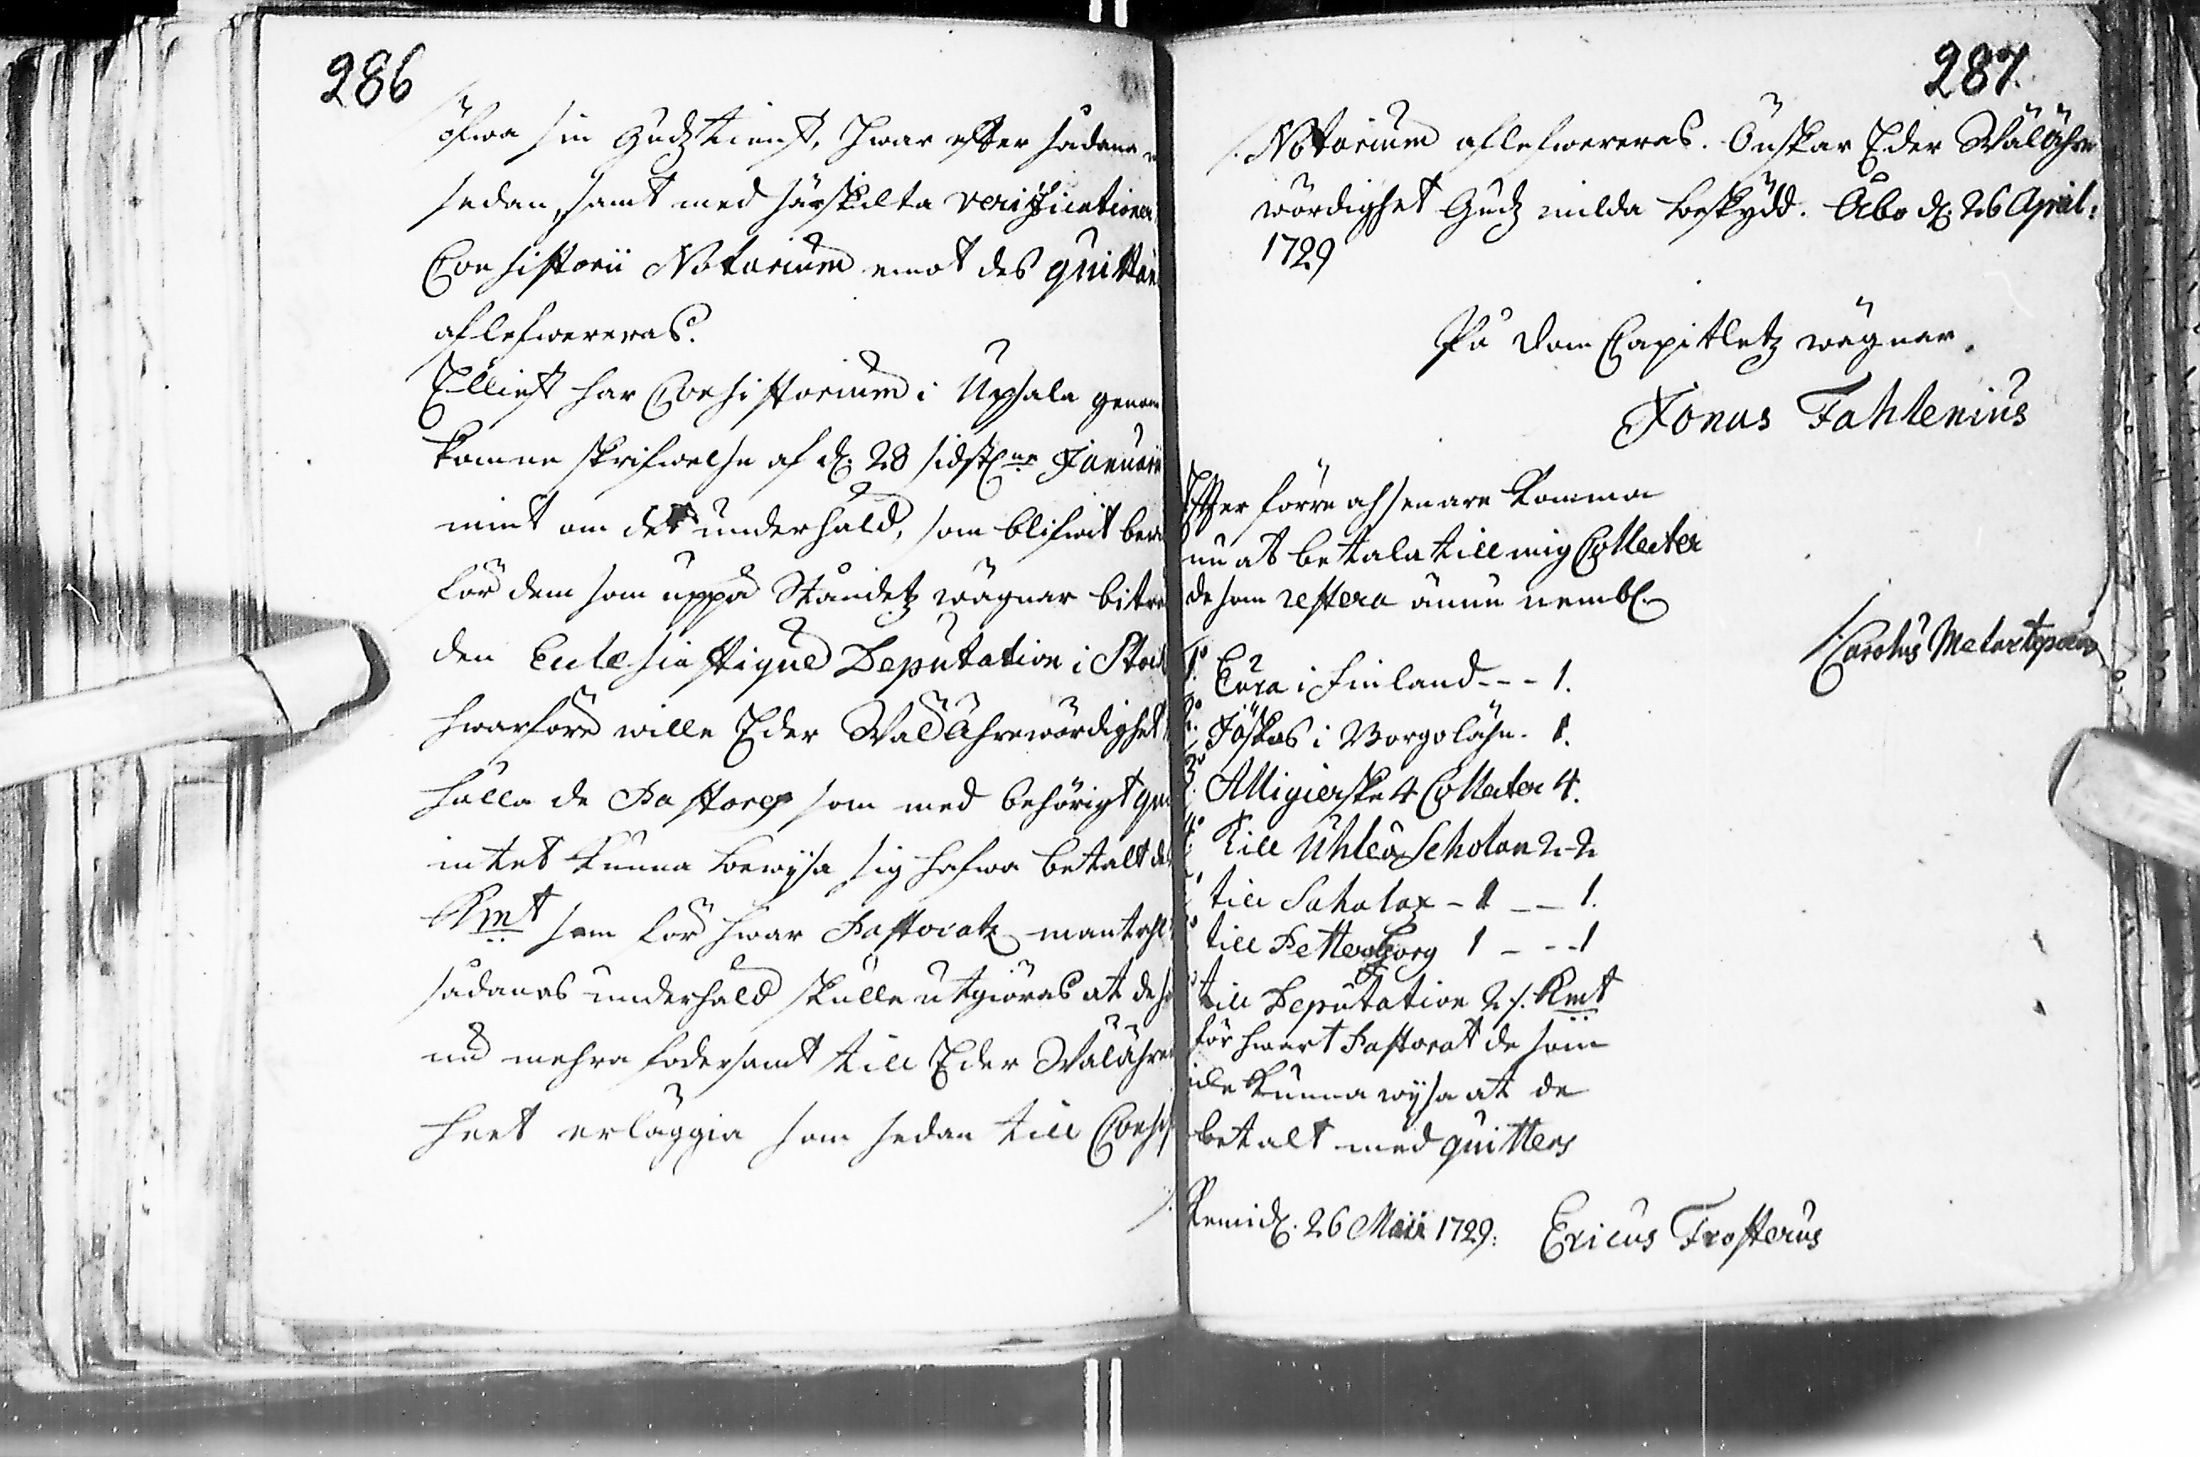 286
öfwa sin Gudztienst, Hwar efter sådana
sedan, samt med särskilta verificationer
Consistorii Notarium emot des quittan
aflefwereras.
Ellliest har Consistorium i Upsala genom
komne skrifwelse af d. 28 sidstne Januarii
mint om det underhåld, som blifwit bew
för dem som uppå Ståndetz wägnar bitr
den Eclesiastique Deputation i Stock
hwarföre wille Eder WälÄhrewördighet
hålla de Pastores som med behörigt qui
intet kunna bewysa sig hafwa betalt de
Kmt som för hwar Pastoratz mantahl
sådanas underhåld skulle utgiöras at de s
nu mehra fodersamt till Eder WälÄhre
heet erläggia som sedan till Cons
287.
/. Notarium aflefwereras. Önskar Eder WälÄhre
wördighet Gudz milda beskydd. Åbo d. 26 April:
1729
På Dom Capitletz wägnar.
Jonas Fahlenius
Effter förre ah senare komma
nu at betala till mig Collecter
de som restera ännu nembl.
1o Eura i Finland --- 1.
2o Jöskas i Borgolähn. 1.
3o Alligierske 4 Collecter 4.
4o Till Uhleå Scholan 2-2
till Sahalax - 1 -- 1.
till Pettersborg 1 --- 1
till Deputation 2 /. Kmt
för hwart Pastorat de som
icke kunna wysa at de
betalt med quitters
Kemi d. 26 Maii 1729: Ericus Frosterus
/. Carolus Matartopæus